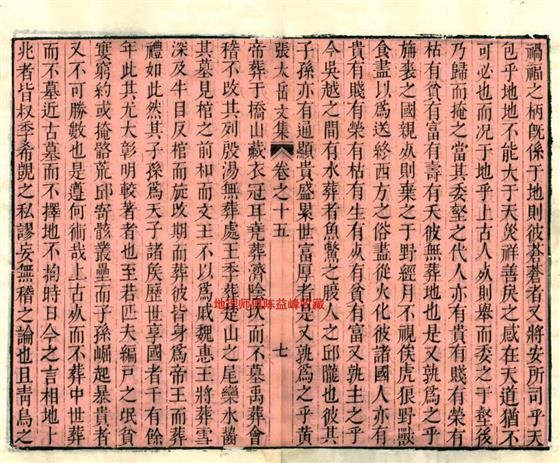 禍福之柄旣係于地則彼蒼蒼者又將安所司乎天
包乎地地不能大于天災祥善戾之感在天道猶不
可必也而况于地乎上古人死則舉而委之于壑後
乃歸而掩之當其委壑之代人亦有貴有賤有榮有
枯有貧有富有壽有夭彼無葬地也是又孰主之乎
旃裘之國親死則棄之于野經月不視俟虎狼野獸
食盡以爲送終西方之俗盡從火化彼諸國人亦有
貴有賤有榮有枯有生有死有貧有富又孰主之乎
今吳越之間有水葬者魚鱉之腹人之邱隴也彼其
子孫亦有通顯貴盛累世富厚者是又孰爲之乎黃
張太岳文集 卷之十五 七
帝葬于橋山藏衣冠耳堯葬濟陰坎而不墓禹葬會
稽不改其列殷湯無葬處王季葬山之尾欒水齧
其墓見棺之前和而文王不以爲戚魏惠王將葬雪
深及牛目反棺而旋改期而葬彼皆身爲帝王而葬
禮如此然其子孫爲天子諸侯歷世享國者千有餘
年此其尤大彰明較著者也至若匹夫編戶之氓貧
寠窮約或掩骼荒邱寄骸叢壘而子孫崛起暴貴者
又不可勝數也是遵何術哉上古死而不葬中世葬
而不墓近古墓而不擇地不拘時日今之言相地卜
兆者皆叔季希覬之私謬妄無稽之論也且靑烏之
地理师 陈益峰收藏